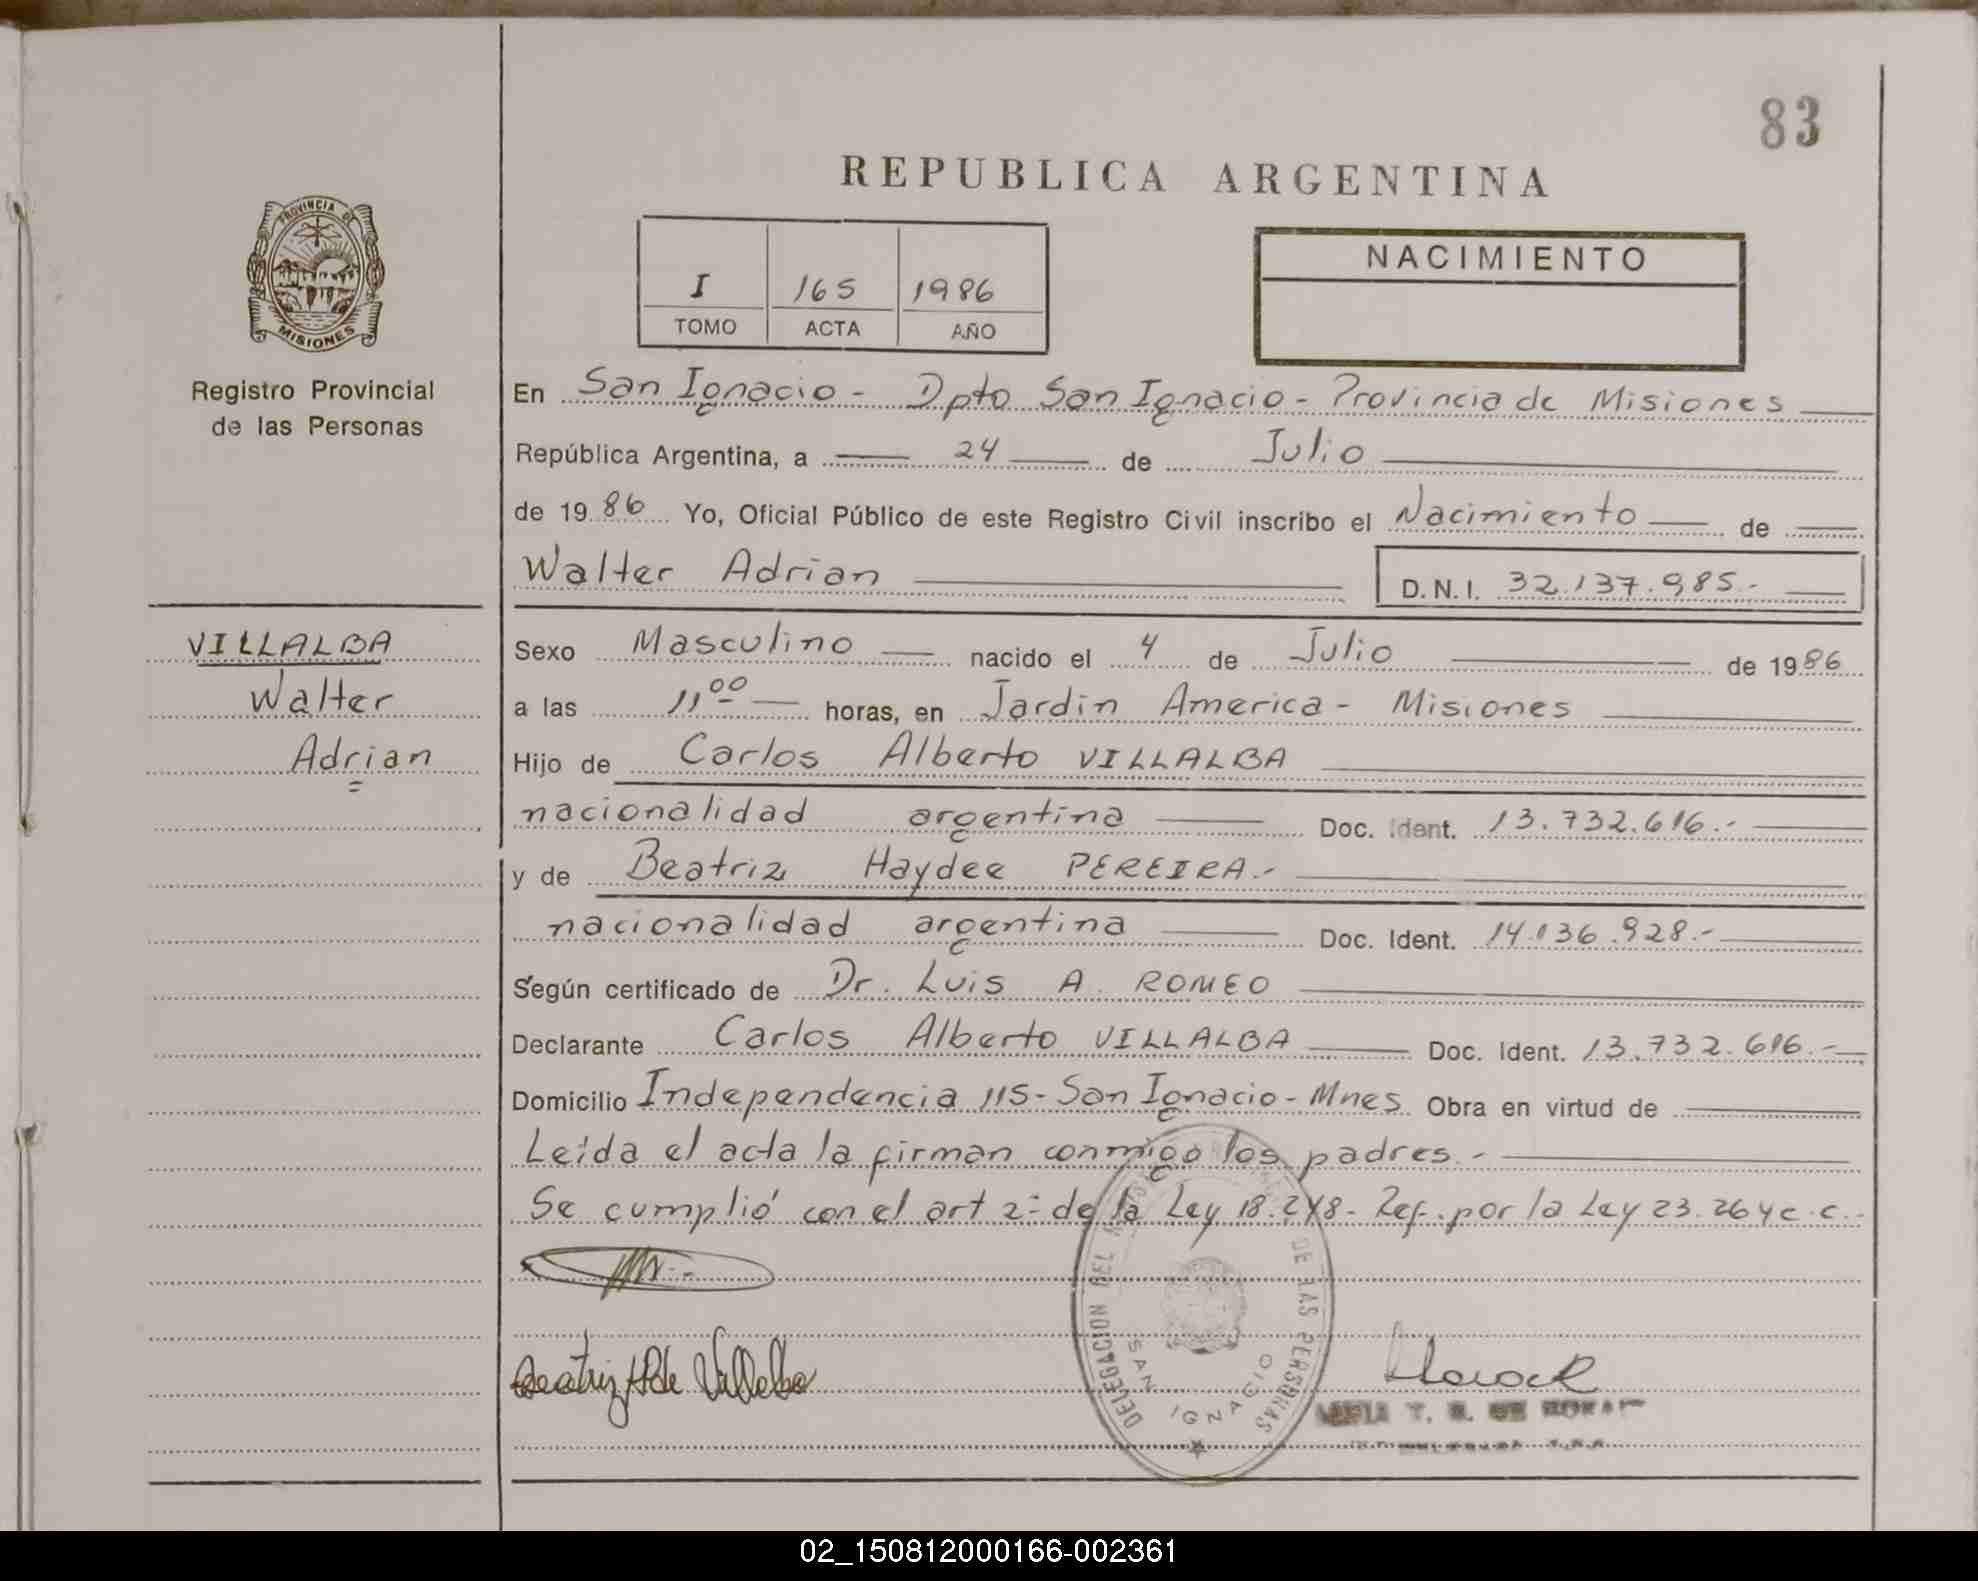 83
REPUBLICA ARGENTINA
PROVINCIA DE
MISIONES
Registro Provincial
de las Personas
I 165 1986
TOMO ACTA AÑO
NACIMIENTO
En San Ignacio - Dpto San Ignacio - Provincia de Misiones
República Argentina, a 24 de Julio
de 1986 Yo, Oficial Público de este Registro Civil inscribo el Nacimiento de
Walter Adrian D.N.I. 32.137.985.-
VILLALBA
Walter
Adrian
Sexo Masculino nacido el 4 de Julio de 1986
a las 11 00 horas, en Jardin America - Misiones
Hijo de Carlos Alberto VILLALBA
nacionalidad argentina Doc. Ident. 13.732.616.-
y de Beatriz Haydee PEREIRA.-
nacionalidad argentina Doc. Ident. 14.136.928.-
Según certificado de Dr. Luis A. ROMEO
Declarante Carlos Alberto VILLALBA Doc. Ident. 13.732.616.-
Domicilio Independencia 115 - San Ignacio - Mnes Obra en virtud de
Leída el acta la firman conmigo los padres.-
Se cumplió con el art 2º de la Ley 18.248 - Ref. por la Ley 23.264 c.c.-
Beatriz H P de Villalba
DELEGACION DEL REGISTRO PROVINCIAL DE LAS PERSONAS
SAN IGNACIO
02_150812000166-002361